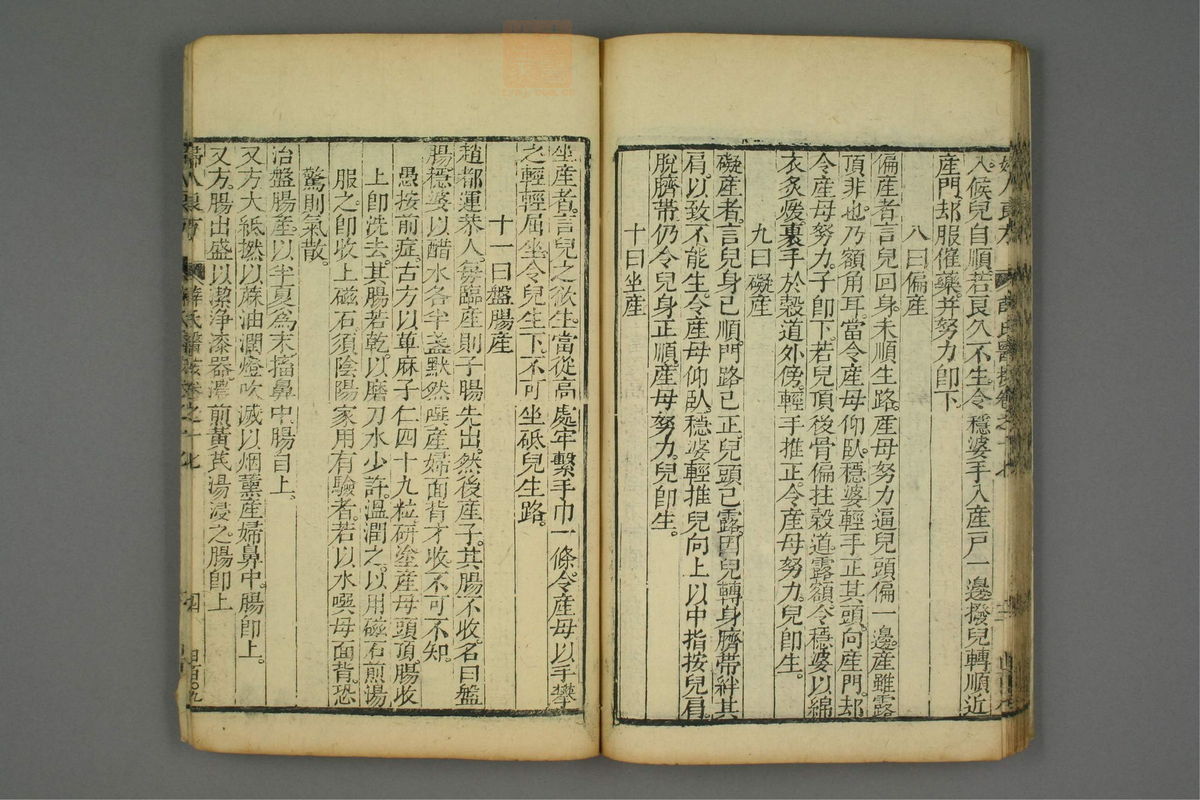 入候兒自順若良久不生令穩婆手入產戸一邊撥兒轉順近
產門却服催藥并努力卽下
八曰偏產
偏產者言兒回身未順生路產母努力逼兒頭偏一邊產雖露
頂非也乃額角耳當令產母仰臥穩婆輕手正其頭向產門却
令產母努力子卽下若兒頂後骨偏拄穀道露額令穩婆以綿
衣炙煖裹手於穀道外傍輕手推正令產母努力兒卽生
九曰礙產
礙產者言兒身已順門路已正兒頭已露因兒轉身臍帶絆其
肩以致不能生令產母仰臥穩婆輕推兒向上以中指按兒肩
脫臍帶仍令兒身正順產母努力兒卽生
十曰坐產
坐產者言兒之欲生當從高處牢繫手巾一條令產母以手攀
之輕輕屈坐令兒生下不可坐砥兒生路
十一曰盤腸產
趙都運恭人每臨產則子腸先出然後產子其腸不收名曰盤
腸穩婆以醋水各半盞默然噀產婦面背才收不可不知
愚按前症古方以萆麻子仁四十九粒研塗產母頭頂腸收
上卽洗去其腸若乾以磨刀水少許溫潤之以用磁石煎湯
服之卽收上磁石須陰陽家用有驗者若以水噀母面背恐
驚則氣散
治盤腸產以半夏為末搐鼻中腸自上
又方大紙撚以蔴油潤燈吹滅以烟薰產婦鼻中腸卽上
又方腸出盛以潔淨漆器濃煎黃芪湯浸之腸卽上